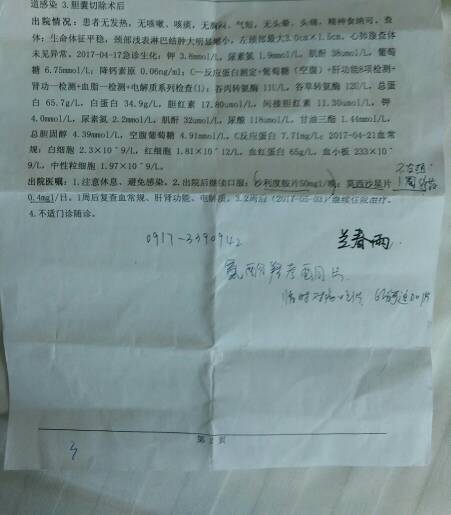 道感染 3.胆囊切除术后
出院情况：患者无发热，无咳嗽、咳痰，无胸闷、气短，无头晕、头痛，精神食纳可。查
体：生命体征平稳，颈部浅表淋巴结肿大明显缩小，左颈部最大3.0cm×1.5cm，心肺腹查体
未见异常。2017-04-17急诊生化：钾 3.8mmol/L，尿素氮 1.9mmol/L，肌酐 38umol/L，葡萄
糖 6.75mmol/L；降钙素原 0.06ng/ml；C-反应蛋白测定+葡萄糖（空腹）+肝功能8项检测+
肾功一检测+血脂一检测+电解质系列检查(1)：谷丙转氨酶 11U/L，谷草转氨酶 12U/L，总蛋
白 65.7g/L，白蛋白 34.9g/L，胆红素 17.80umol/L，间接胆红素 11.30umol/L，钾
4.0mmol/L，尿素氮 2.2mmol/L，肌酐 32umol/L，尿酸 118umol/L，甘油三酯 1.44mmol/L，
总胆固醇 4.39mmol/L，空腹葡萄糖 4.91mmol/L，C反应蛋白 7.71mg/L；2017-04-21血常
规：白细胞 2.3×10^9/L，红细胞 1.81×10^12/L，血红蛋白 65g/L，血小板 233×10^
9/L，中性粒细胞 1.97×10^9/L。
出院医嘱：1.注意休息、避免感染。2.出院后继续口服：沙利度胺片50mg1/晚；莫西沙星片
0.4mg1/日。1周后复查血常规、肝肾功能、电解质。3.2周后（2017-05-03）继续住院治疗。
4.不适门诊随诊。
0917-3390942
兰春雨
第 2 页